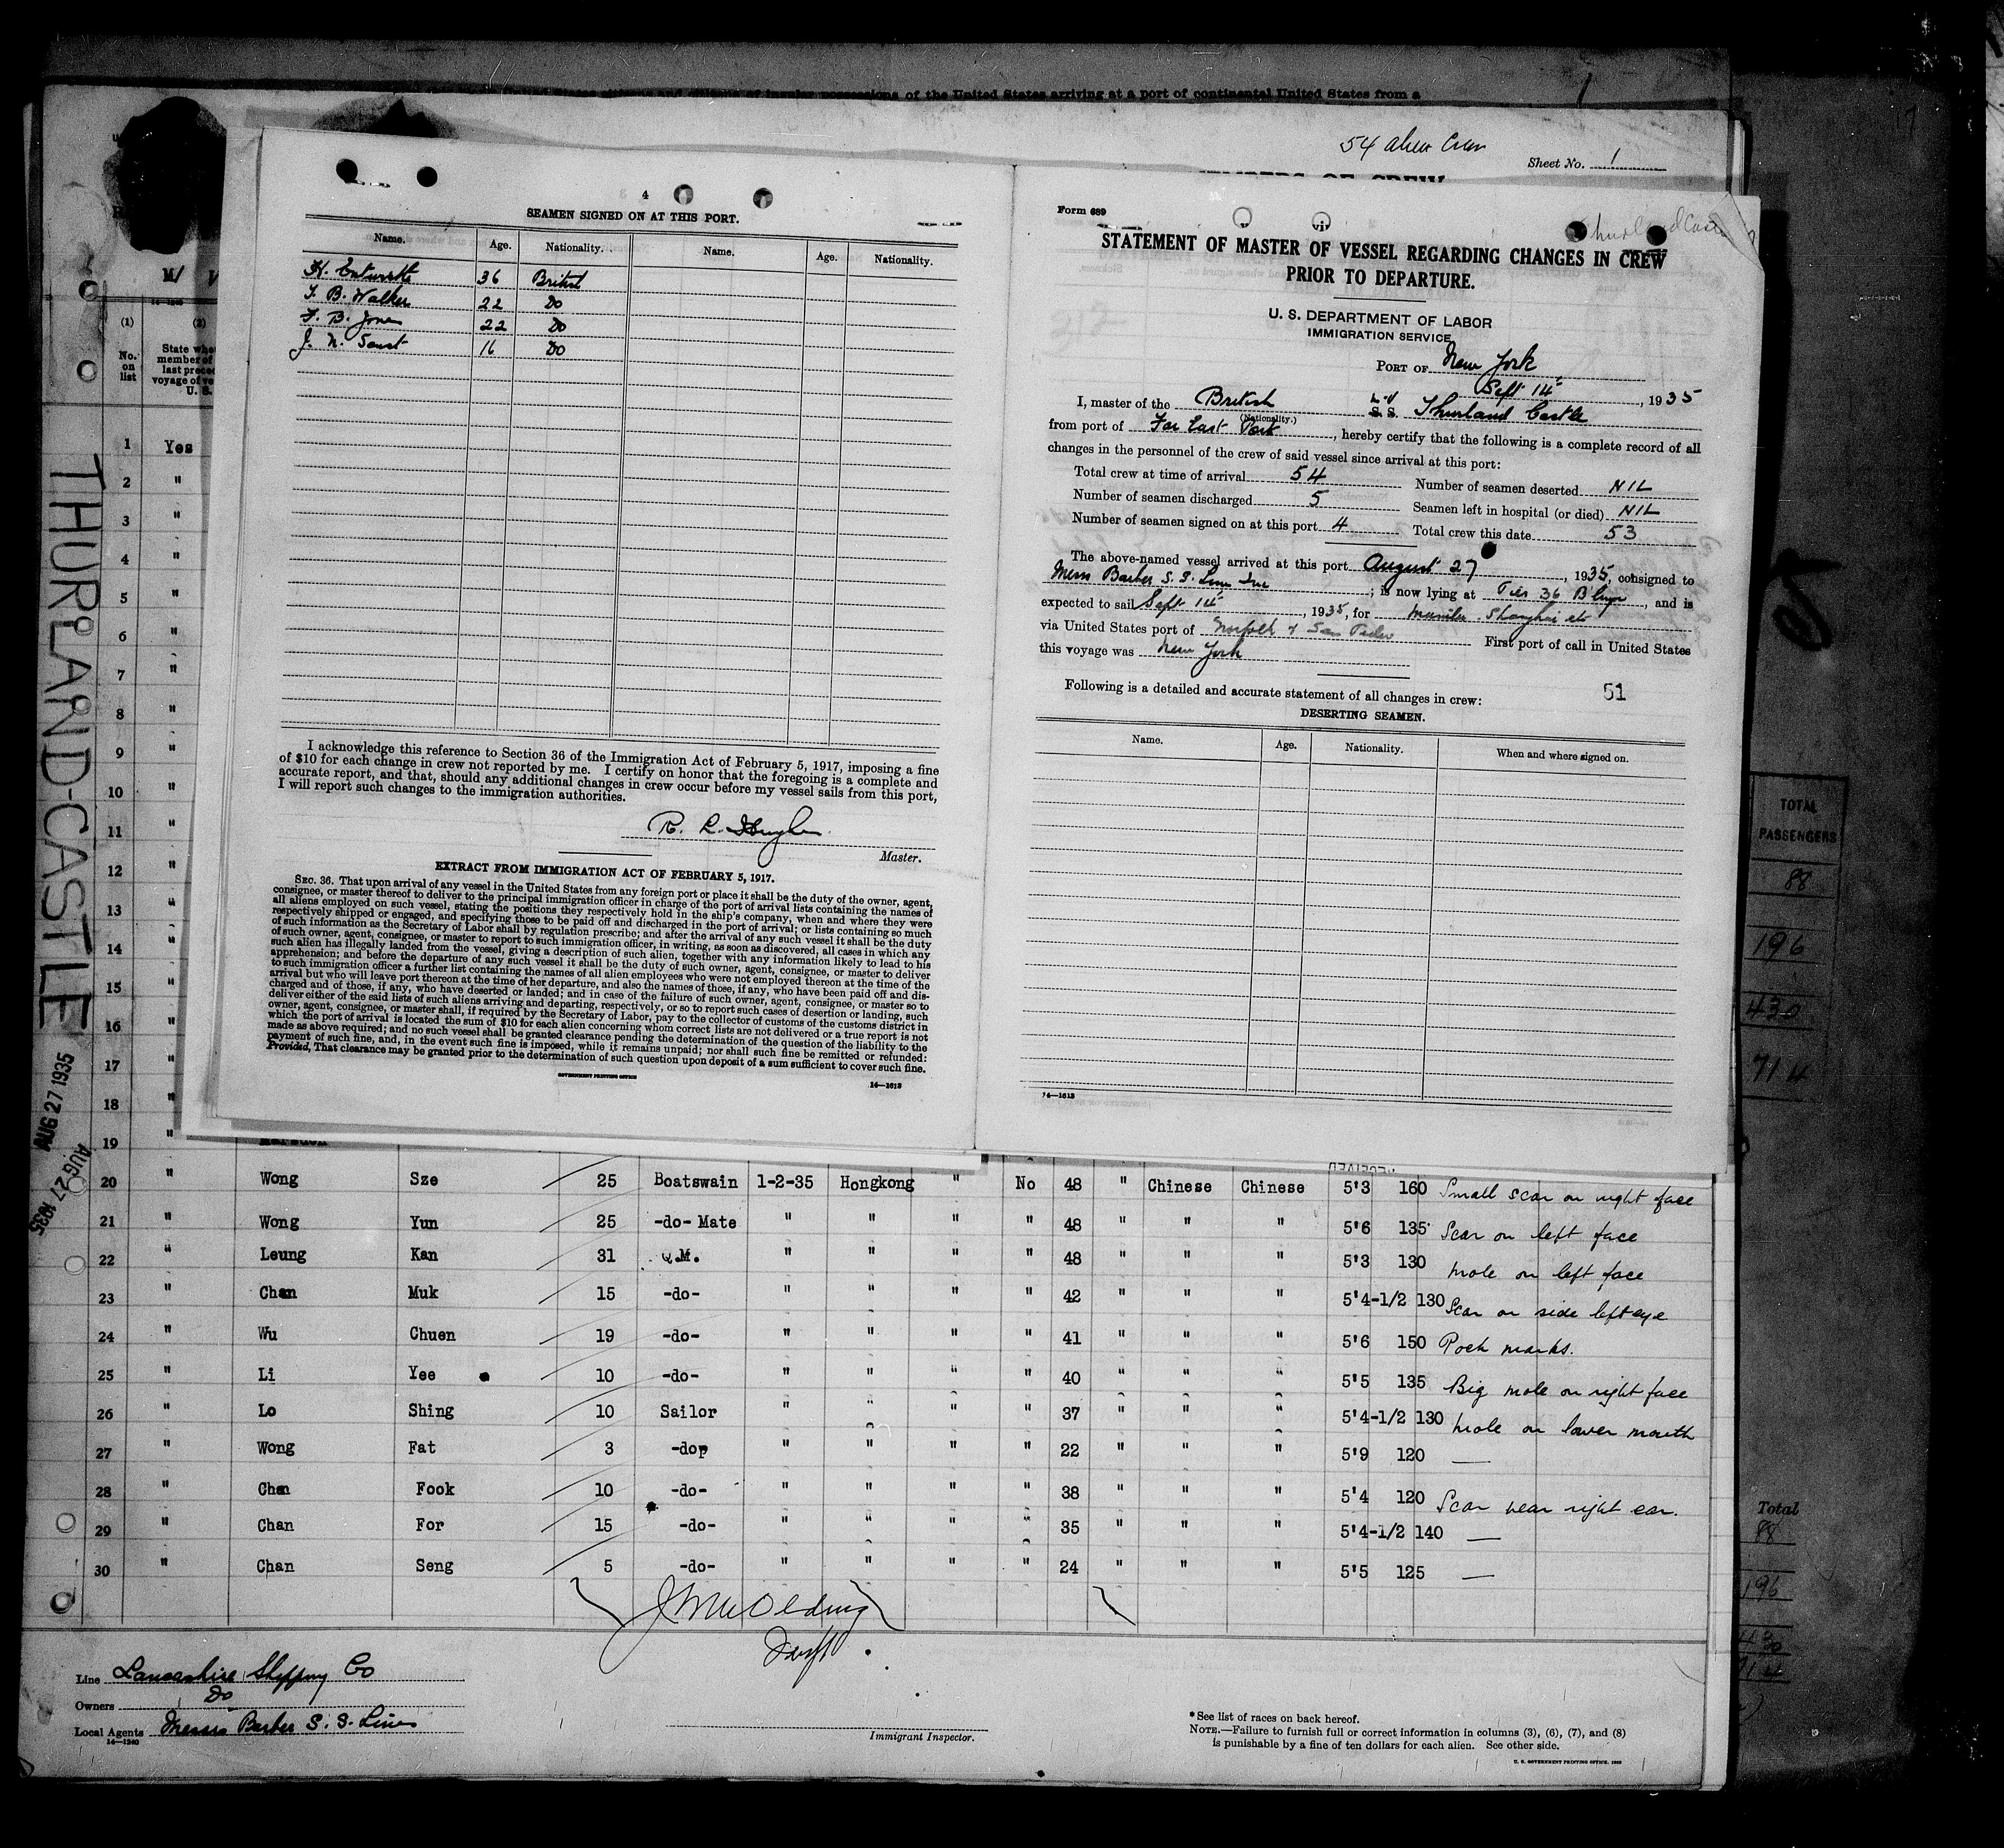 States citizens and citizens of insular possessions of the United States arriving at a port of continental United States from a
54 alien Crew
Sheet No. 1
4
SEAMEN SIGNED ON AT THIS PORT.
Name. Age. Nationality. Name. Age. Nationality.
H. 36 British
B. Walker 22 Do
B. Jones 22 Do
J. N. 16 Do
I acknowledge this reference to Section 36 of the Immigration Act of February 5, 1917, imposing a fine
of $10 for each change in crew not reported by me. I certify on honor that the foregoing is a complete and
accurate report, and that, should any additional changes in crew occur before my vessel sails from this port,
I will report such changes to the immigration authorities.
R. L. Hughes
Master.
EXTRACT FROM IMMIGRATION ACT OF FEBRUARY 5, 1917.
SEC. 36. That upon arrival of any vessel in the United States from any foreign port or place it shall be the duty of the owner, agent,
consignee, or master thereof to deliver to the principal immigration officer in charge of the port of arrival lists containing the names of
all aliens employed on such vessel, stating the positions they respectively hold in the ship's company, when and where they were
respectively shipped or engaged, and specifying those to be paid off and discharged in the port of arrival; or lists containing so much
of such information as the Secretary of Labor shall by regulation prescribe; and after the arrival of any such vessel it shall be the duty
of such owner, agent, consignee, or master to report to such immigration officer, in writing, as soon as discovered, all cases in which any
such alien has illegally landed from the vessel, giving a description of such alien, together with any information likely to lead to his
apprehension; and before the departure of any such vessel it shall be the duty of such owner, agent, consignee, or master to deliver
to such immigration officer a further list containing the names of all alien employees who were not employed thereon at the time of the
arrival but who will leave port thereon at the time of her departure, and also the names of those, if any, who have been paid off and dis-
charged and of those, if any, who have deserted or landed; and in case of the failure of such owner, agent, consignee, or master so to
deliver either of the said lists of such aliens arriving and departing, respectively, or so to report such cases of desertion or landing, such
owner, agent, consignee, or master shall, if required by the Secretary of Labor, pay to the collector of customs of the customs district in
which the port of arrival is located the sum of $10 for each alien concerning whom correct lists are not delivered or a true report is not
made as above required; and no such vessel shall be granted clearance pending the determination of the question of the liability to the
payment of such fine, and, in the event such fine is imposed, while it remains unpaid; nor shall such fine be remitted or refunded:
Provided, That clearance may be granted prior to the determination of such question upon deposit of a sum sufficient to cover such fine.
GOVERNMENT PRINTING OFFICE
14—1613
Form 689
Thurland Castle
STATEMENT OF MASTER OF VESSEL REGARDING CHANGES IN CREW
PRIOR TO DEPARTURE.
U. S. DEPARTMENT OF LABOR
IMMIGRATION SERVICE
PORT OF New York
Sept 14, 1935
I, master of the British S. S. Thurland Castle
(Nationality.)
from port of Far East Port, hereby certify that the following is a complete record of all
changes in the personnel of the crew of said vessel since arrival at this port:
Total crew at time of arrival 54 Number of seamen deserted NIL
Number of seamen discharged 5 Seamen left in hospital (or died) NIL
Number of seamen signed on at this port 4 Total crew this date 53
The above-named vessel arrived at this port August 27, 1935, consigned to
Mess Barber S. S. Line Inc; is now lying at Pier 36 Blyn, and is
expected to sail Sept 14, 1935, for Manila Shanghai etc
via United States port of Norfolk & San Pedro First port of call in United States
this voyage was New York
Following is a detailed and accurate statement of all changes in crew: 51
DESERTING SEAMEN.
Name. Age. Nationality. When and where signed on.
14—1613
(1) (2)
No. on list
State whe
member of
last prece
voyage of ve
U. S.
1 Yes
2 "
3 "
4 "
5 "
6 "
7 "
8 "
9 "
10 "
11 "
12 "
13 "
14 "
15 "
16 "
17 "
18 "
19 "
THURLAND-CASTLE
AUG 27 1935
AUG 27 1935
20 " Wong Sze 25 Boatswain 1-2-35 Hongkong " No 48 " Chinese Chinese 5'3 160 Small scar on right face
21 " Wong Yun 25 -do- Mate " " " " 48 " " " 5'6 135 Scar on left face
22 " Leung Kan 31 Q.M. " " " " 48 " " " 5'3 130 mole on left face
23 " Chan Muk 15 -do- " " " " 42 " " " 5'4-1/2 130 Scar on side left eye
24 " Wu Chuen 19 -do- " " " " 41 " " " 5'6 150 Pock marks.
25 " Li Yee 10 -do- " " " " 40 " " " 5'5 135 Big mole on right face
26 " Lo Shing 10 Sailor " " " " 37 " " " 5'4-1/2 130 mole on lower mouth
27 " Wong Fat 3 -dop " " " " 22 " " " 5'9 120 —
28 " Chan Fook 10 -do- " " " " 38 " " " 5'4 120 Scar near right ear.
29 " Chan For 15 -do- " " " " 35 " " " 5'4-1/2 140 —
30 " Chan Seng 5 -do- " " " " 24 " " " 5'5 125 —
Line Lancashire Shipping Co
Owners Do
Local Agents Messrs Barber S. S. Lines
14—1240
Immigrant Inspector.
* See list of races on back hereof.
NOTE.—Failure to furnish full or correct information in columns (3), (6), (7), and (8)
is punishable by a fine of ten dollars for each alien. See other side.
U. S. GOVERNMENT PRINTING OFFICE
17
TOTAL
PASSENGERS
88
196
430
714
Total
88
196
430
714